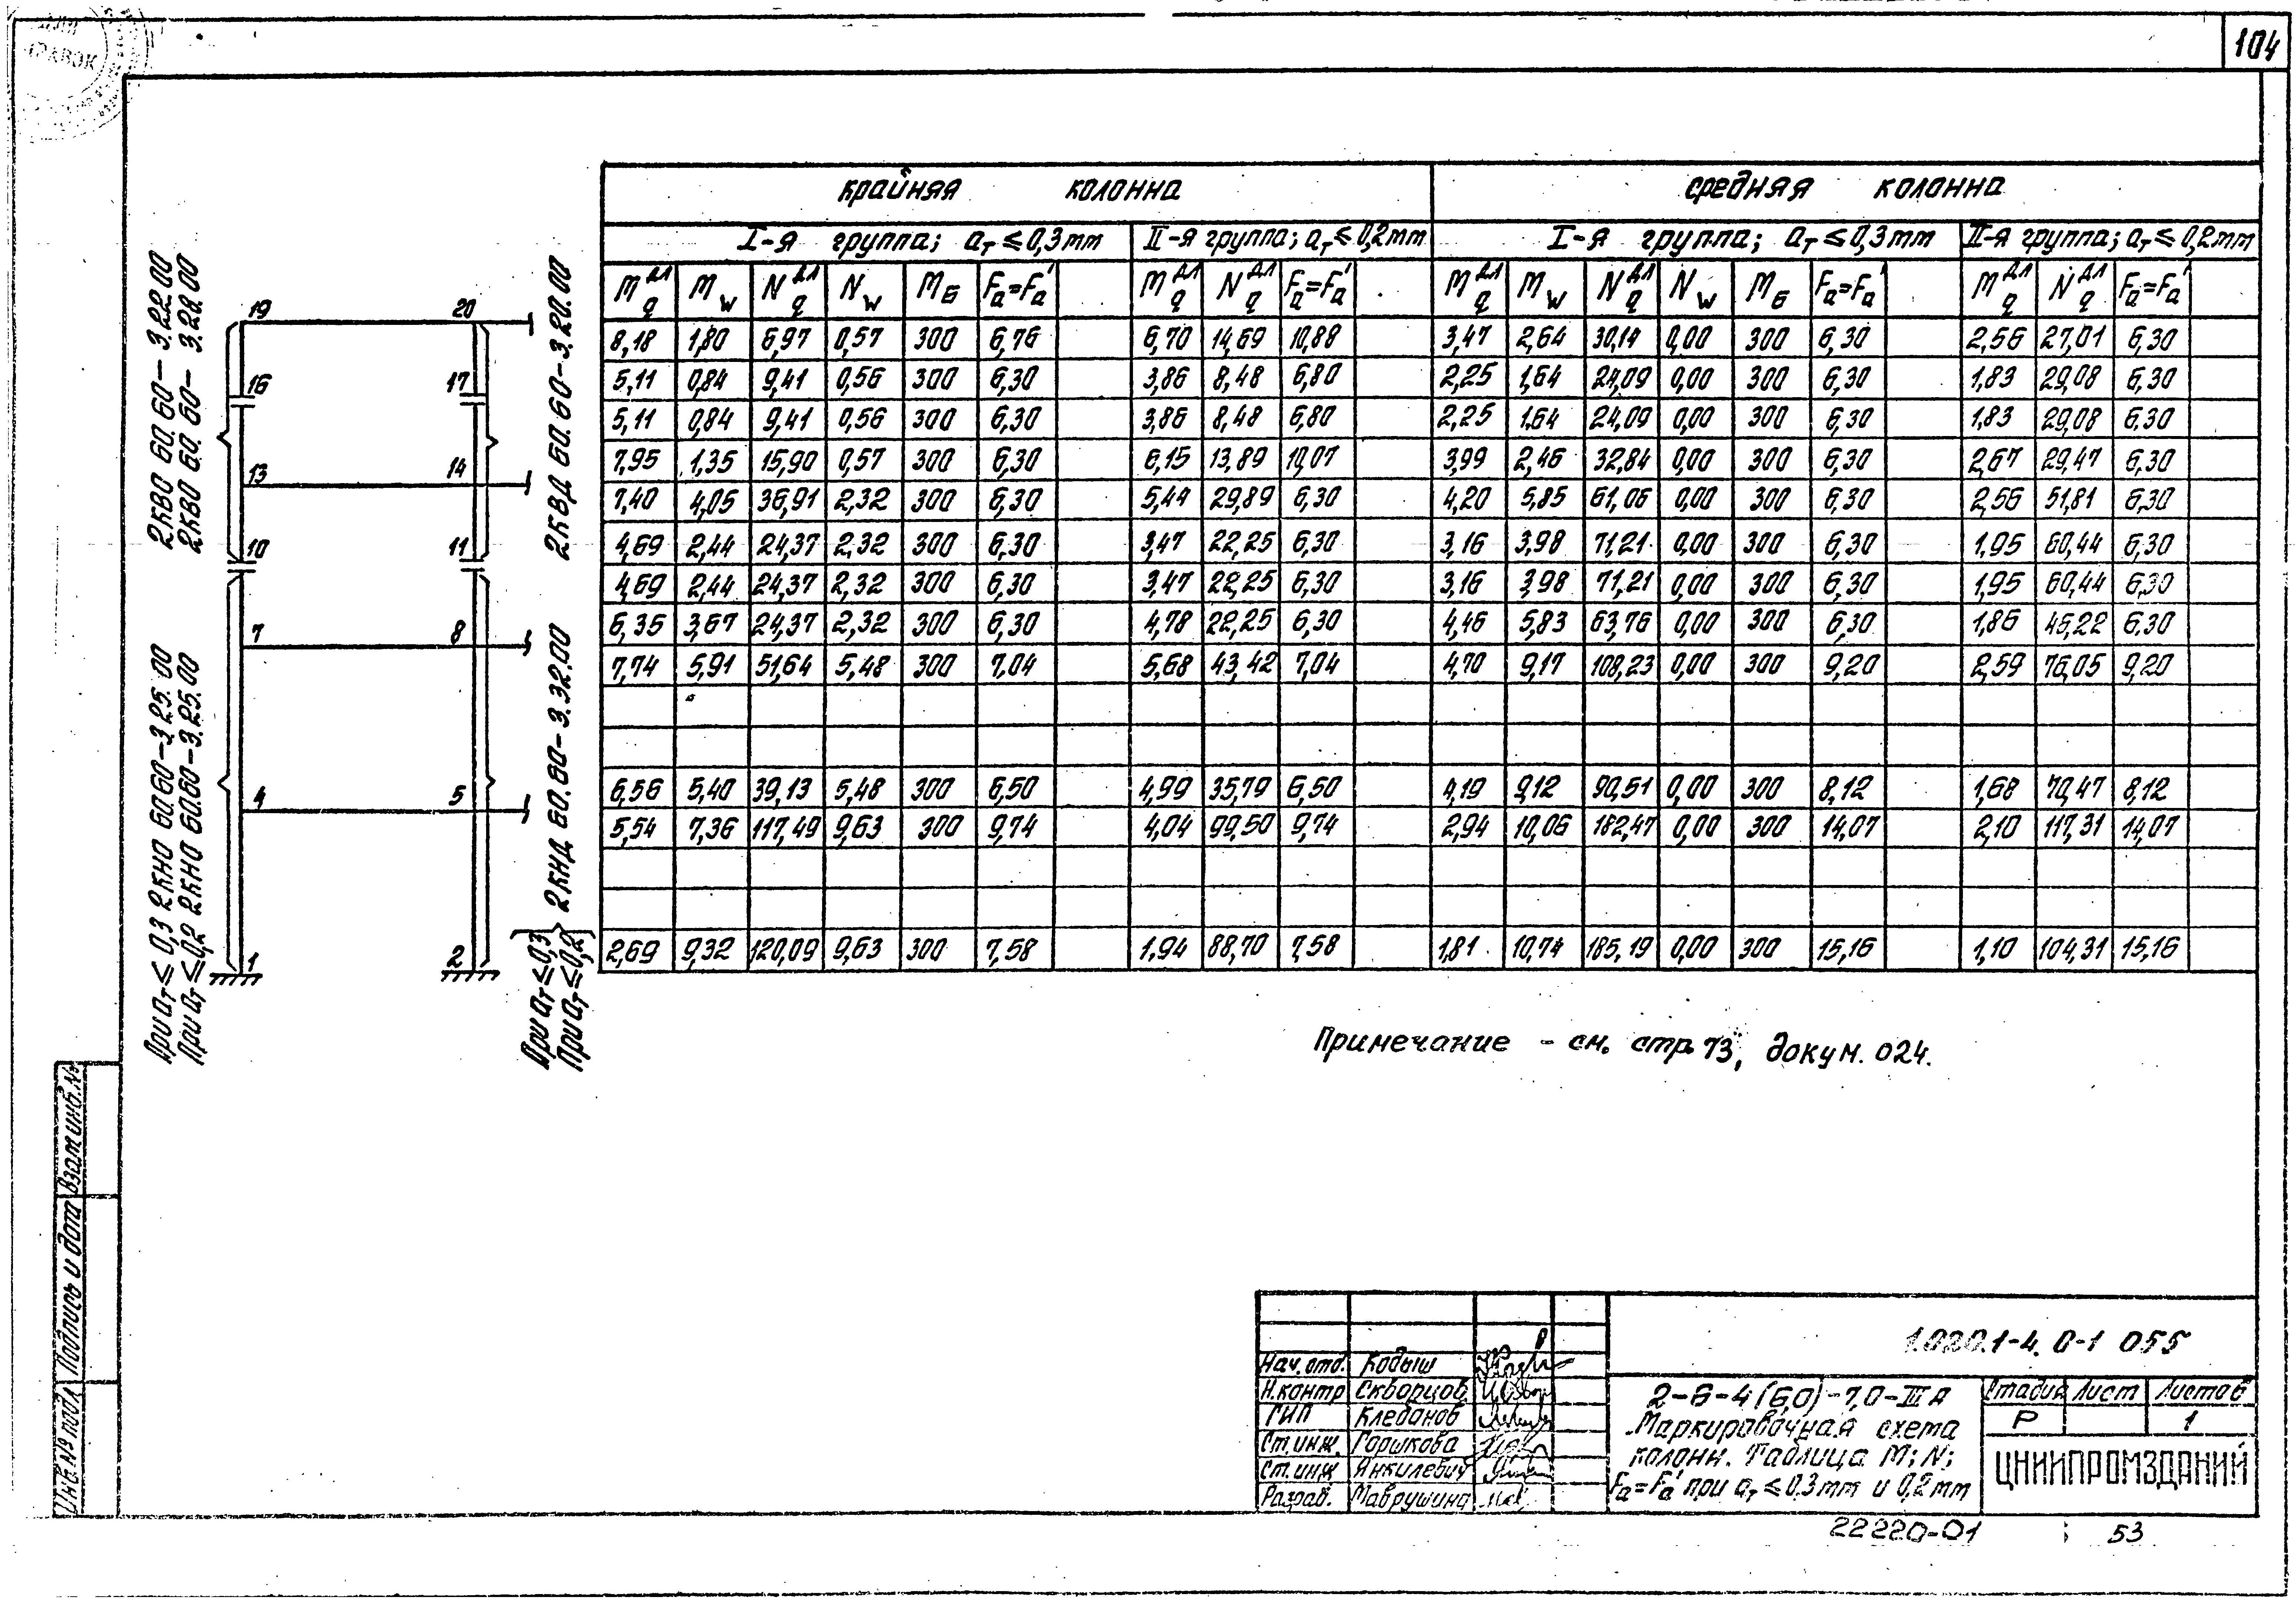 104
крайняя колонна средняя колонна
I-я группа; aт ≤ 0,3mm II-я группа; aт ≤ 0,2mm I-я группа; aт ≤ 0,3mm II-я группа; aт ≤ 0,2mm
M дл q M w N дл q N w Mб Fa=Fa' M дл q N дл q Fa=Fa' M дл q M w N дл q N w Mб Fa=Fa' M дл q N дл q Fa=Fa'
8,18 1,80 6,97 0,57 300 6,76 6,70 14,69 10,88 3,47 2,64 30,14 0,00 300 6,30 2,56 27,01 6,30
5,11 0,84 9,41 0,56 300 6,30 3,86 8,48 6,80 2,25 1,64 24,09 0,00 300 6,30 1,83 29,08 6,30
5,11 0,84 9,41 0,56 300 6,30 3,86 8,48 6,80 2,25 1,64 24,09 0,00 300 6,30 1,83 29,08 6,30
7,95 1,35 15,90 0,57 300 6,30 6,15 13,89 10,07 3,99 2,46 32,84 0,00 300 6,30 2,67 29,47 6,30
7,40 4,05 36,91 2,32 300 6,30 5,44 29,89 6,30 4,20 5,85 61,06 0,00 300 6,30 2,56 51,81 6,30
4,69 2,44 24,37 2,32 300 6,30 3,47 22,25 6,30 3,16 3,98 71,21 0,00 300 6,30 1,95 60,44 6,30
4,69 2,44 24,37 2,32 300 6,30 3,47 22,25 6,30 3,16 3,98 71,21 0,00 300 6,30 1,95 60,44 6,30
6,35 3,67 24,37 2,32 300 6,30 4,78 22,25 6,30 4,46 5,83 63,76 0,00 300 6,30 1,86 45,22 6,30
7,74 5,91 51,64 5,48 300 7,04 5,68 43,42 7,04 4,70 9,17 108,23 0,00 300 9,20 2,59 76,05 9,20
6,56 5,40 39,13 5,48 300 6,50 4,99 35,79 6,50 4,19 9,12 90,51 0,00 300 8,12 1,68 70,47 8,12
5,54 7,36 117,49 9,63 300 9,74 4,04 99,50 9,74 2,94 10,06 182,47 0,00 300 14,07 2,10 117,31 14,07
2,69 9,32 120,09 9,63 300 7,58 1,94 88,70 7,58 1,81 10,74 185,19 0,00 300 15,16 1,10 104,31 15,16
2КВО 60.60-3.22.00
2КВО 60.60-3.28.00
2КВД 60.60-3.20.00
При aт ≤ 0,3 2КНО 60.60-3.25.00
При aт ≤ 0,2 2КНО 60.60-3.25.00
При aт ≤ 0,3
При aт ≤ 0,2
2КНД 60.60-3.32.00
19 20
16 17
13 14
10 11
7 8
4 5
1 2
Примечание - см. стр 73, докум. 024.
Взам инв. №
Подпись и дата
Инв. № подл
1.020.1-4. 0-1 055
Нач. отд. Кодыш
Н.контр Скворцов
ГИП Клебанов
Ст.инж. Горшкова
Ст.инж Янкилевич
Разраб. Маврушина
2-6-4(6,0)-7,0-IIIА
Маркировочная схема
колонн. Таблица M; N;
Fa=Fa' при aт ≤ 0,3mm и 0,2mm
Стадия Лист Листов
Р 1
ЦНИИПРОМЗДАНИЙ
22220-01 53